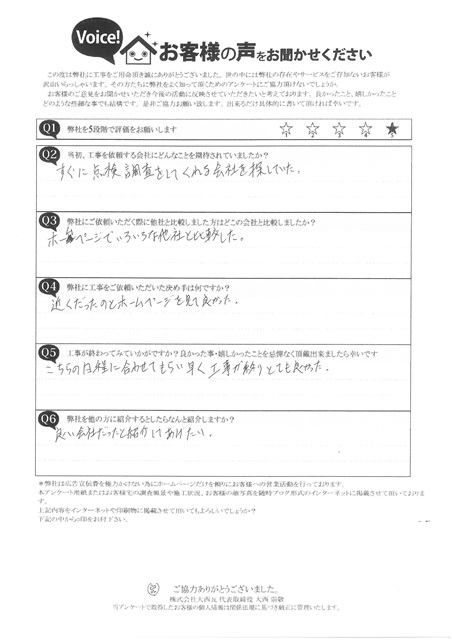 Voice!
お客様の声をお聞かせください
この度は弊社に工事をご用命頂き誠にありがとうございました。世の中には弊社の存在やサービスをご存知ないお客様が
沢山いらっしゃいます。その方たちに弊社をよく知って頂くためのアンケートにご協力頂けないでしょうか。
お客様のご意見をお聞かせいただき今後の活動に反映させていただきたいと考えております。良かったこと、嬉しかったこと
どのような些細な事でも結構です。是非ご協力お願い致します。出来るだけ具体的に書いて頂ければ幸いです。
Q1 弊社を5段階で評価をお願いします ☆1 ☆2 ☆3 ☆4 ★5
Q2 当初、工事を依頼する会社にどんなことを期待されていましたか？
すぐに点検 調査をしてくれる会社を探していた。
Q3 弊社にご依頼いただく際に他社と比較しました方はどこの会社と比較しましたか？
ホームページでいろいろな他社と比較した。
Q4 弊社に工事をご依頼いただいた決め手は何ですか？
近くだったのとホームページを見て良かった。
Q5 工事が終わってみていかがですか？良かった事・嬉しかったことを忌憚なく頂戴出来ましたら幸いです
こちらの日程に合わせてもらい早く工事が終りとても良かった。
Q6 弊社を他の方に紹介するとしたらなんと紹介しますか？
良い会社だったと紹介してあげたい。
＊弊社は広告宣伝費を極力かけない為にホームページだけを頼りにお客様への営業活動を行っております。
本アンケート用紙またはお客様宅の調査風景や施工状況、お客様の顔写真を随時ブログ形式のインターネットに掲載させて頂いております。
上記内容をインターネットや印刷物に掲載させて頂いてもよろしいでしょうか？
下記の中から○印をお付下さい。
ご協力ありがとうございました。
株式会社大西瓦 代表取締役 大西
当アンケートで取得したお客様の個人情報は関係法規に基づき厳正に管理いたします。